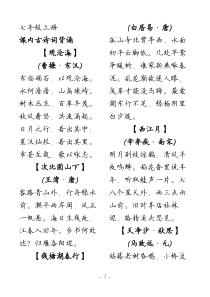 七年级上册
课内古诗词背诵
【观沧海】
(曹操·东汉)
东临碣石，以观沧海。
水何澹澹，山岛竦峙。
树木丛生，百草丰茂。
秋风萧瑟，洪波涌起。
日月之行，若出其中；
星汉灿烂，若出其里。
幸甚至哉，歌以咏志。
【次北固山下】
(王湾·唐)
客路青山外，行舟绿水
前。潮平两岸阔，风正
一帆悬。海日生残夜，
江春入旧年。乡书何处
达？归雁洛阳边。
【钱塘湖春行】
(白居易·唐)
孤山寺北贾亭西，水面
初平云脚低。几处早莺
争暖树，谁家新燕啄春
泥。乱花渐欲迷人眼，
浅草才能没马蹄。最爱
湖东行不足，绿杨阴里
白沙堤。
【西江月】
(辛弃疾·南宋)
明月别枝惊鹊，清风半
夜鸣蝉。稻花香里说丰
年，听取蛙声一片。七
八个星天外，两三点雨
山前。旧时茅店社林
边，路转溪头忽见。
【天净沙·秋思】
(马致远·元)
枯藤老树昏鸦，小桥流
- 1 -